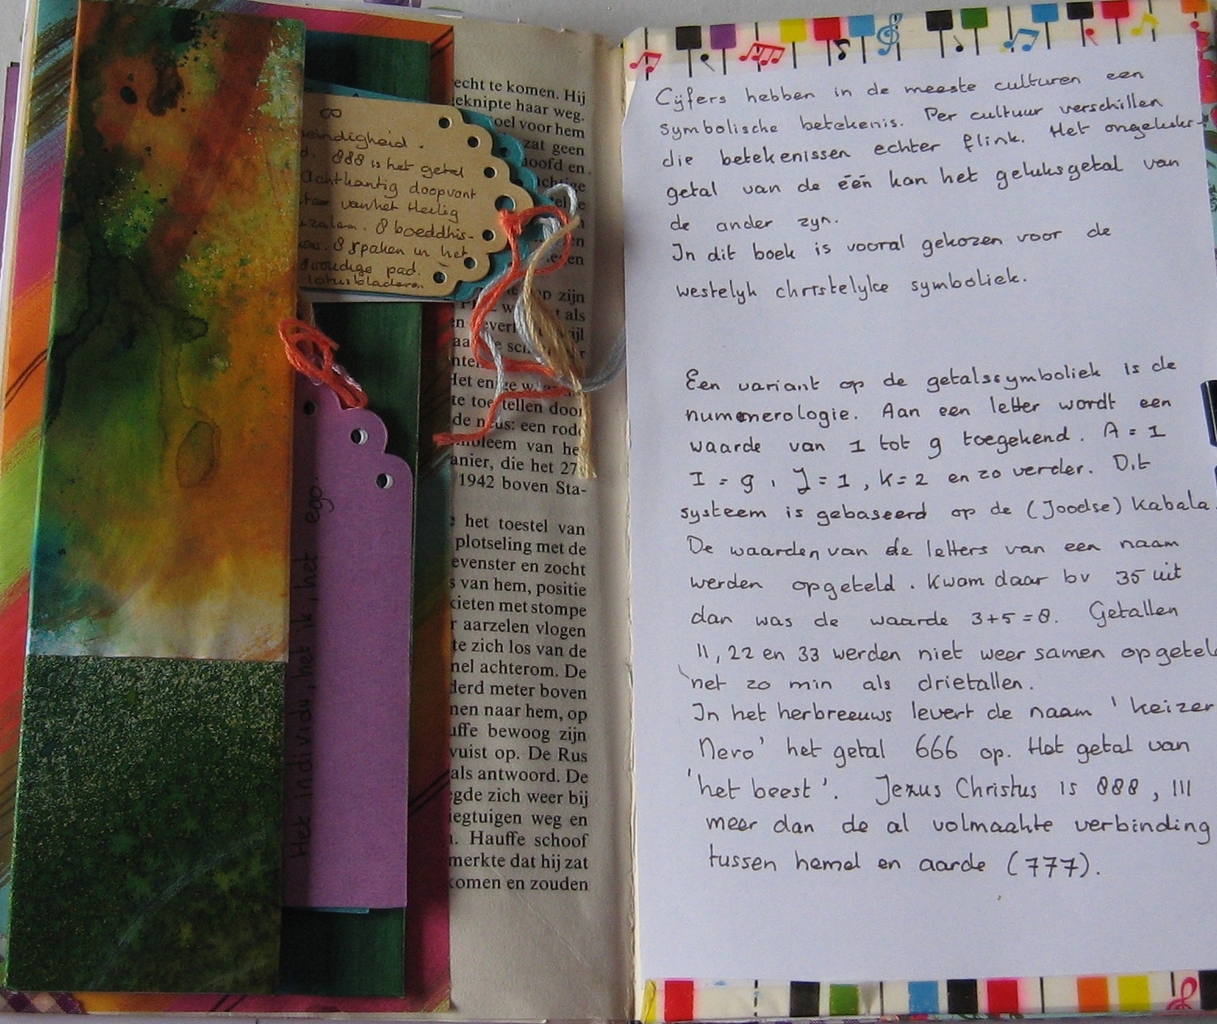 ∞
eindigheid.
d. 888 is het getal
Achtkantig doopvont
van het Heilig
8 boeddhis-
8 spaken in het
8voudige pad.
lotusbladeren
Het individu, het ik, het ego.
echt te komen. Hij
eknipte haar weg.
oel voor hem
zat geen
hoofd en
op zijn
te toestellen door
de neus: een rode
mbleem van he
anier, die het 27
1942 boven Sta-
het toestel van
plotseling met de
evenster en zocht
s van hem, positie
kieten met stompe
r aarzelen vlogen
te zich los van de
nel achterom. De
derd meter boven
nen naar hem, op
uffe bewoog zijn
vuist op. De Rus
als antwoord. De
egde zich weer bij
iegtuigen weg en
n. Hauffe schoof
merkte dat hij zat
komen en zouden
Cijfers hebben in de meeste culturen een
symbolische betekenis. Per cultuur verschillen
die betekenissen echter flink. Het ongeluks-
getal van de één kan het geluksgetal van
de ander zijn.
In dit boek is vooral gekozen voor de
westelyk christelyke symboliek.
Een variant op de getalssymboliek is de
numenerologie. Aan een letter wordt een
waarde van 1 tot 9 toegekend. A = 1
I = 9, J = 1, K = 2 en zo verder. Dit
systeem is gebaseerd op de (Joodse) Kabala.
De waarden van de letters van een naam
werden opgeteld. Kwam daar bv 35 uit
dan was de waarde 3+5=8. Getallen
11, 22 en 33 werden niet weer samen opgetel
net zo min als drietallen.
In het herbreeuws levert de naam 'keizer
Nero' het getal 666 op. Het getal van
'het beest'. Jezus Christus is 888, 111
meer dan de al volmaakte verbinding
tussen hemel en aarde (777).